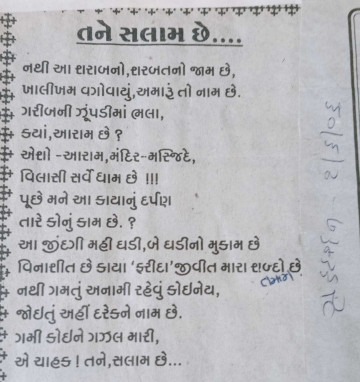 તને સલામ છે....
નથી આ શરાબનો,શરબતનો જામ છે,
ખાલીખમ વગોવાયું,અમારૂં તો નામ છે.
ગરીબની ઝૂંપડીમાં ભલા,
ક્યાં,આરામ છે ?
એશો -આરામ,મંદિર-મસ્જિદે,
વિલાસી સર્વે ધામ છે !!!
પૂછે મને આ કાયાનું દર્પણ
તારે કોનું કામ છે. ?
આ જીંદગી મહી ઘડી,બે ઘડીનો મુકામ છે
વિનાશીત છે કાયા 'ફરીદા'જીવીત મારા શબ્દો છે
તમામ
નથી ગમતું અનામી રહેવું કોઇનેય,
જોઇતું અહીં દરેકને નામ છે.
ગમી કોઇને ગઝલ મારી,
એ ચાહક ! તને,સલામ છે...